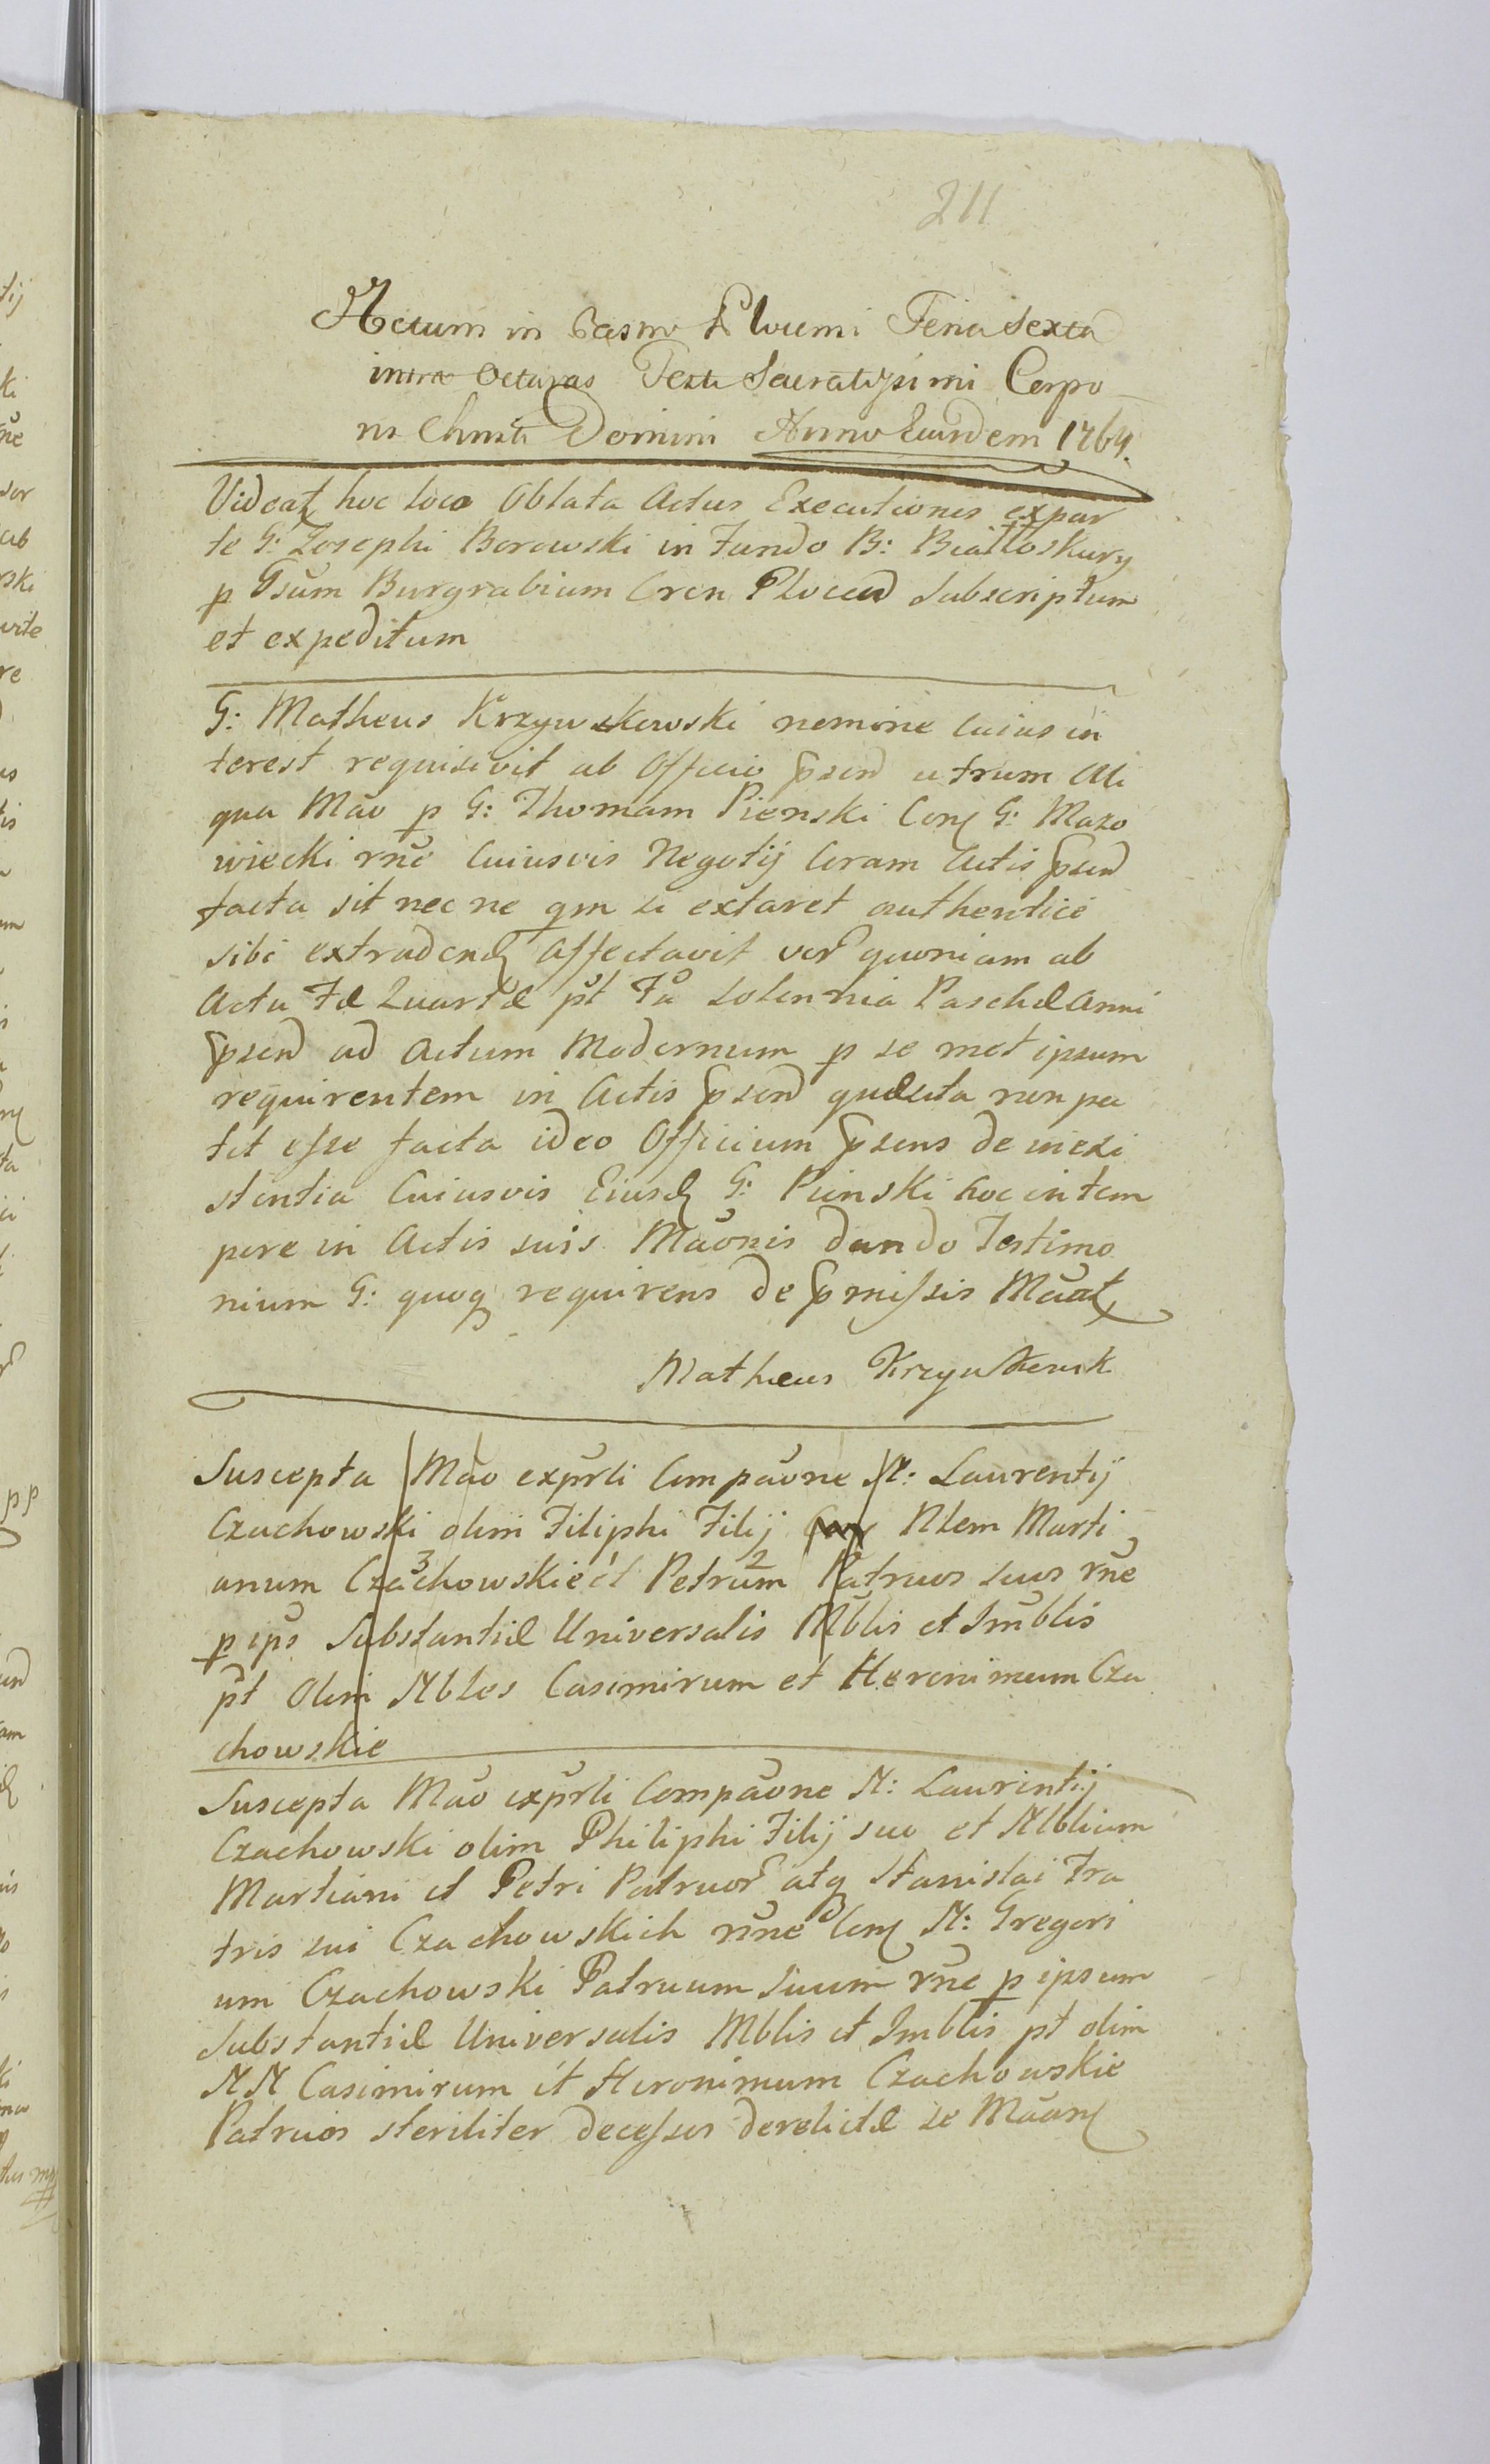 211
Actum in Castro Plocensi Feria Sexta
intra Octavas Festi Sacratissimi Corpo
ris Christi Domini Anno Eiusdem 1764.
Videat hoc loco Oblata Actus Executionis expar
te G: Josephi Borowski in Fundo B: Białłoskury
p Gsum Burgrabium Cren Plocen Subscriptum
et expeditum
G: Matheus Krzywkowski nomine cuius in
terest requisivit ab Officio psen utrum Ali
qua Mao p G: Thomam Pienski Con G: Mazo
wiecki rne Cuiusvis Negotij Coram Actis psen
facta sit nec ne qm si extaret authentice
sibi extraden Affectavit ver quoniam ab
Actu Fæ Quartæ pt Fa Solennia Paschæ Anni
psen ad Actum Modernum p se met ipsum
requirentem in Actis psen quæsita non pa
tet esse facta ideo Officium psens de inexi
stentia Cuiusvis Eiusd G: Pienski hoc in tem
pore in Actis suis Maonis dando Testimo
nium G: quoq requirens de pmissis Maat
Matheus Krzywkowsk
Suscepta Mao exprli Compaone N: Laurentij
Czachowski olim Filiphi Filij Nlem Marti
anum Czachowskie et Petrum Patruos suos rne
p ips Substantiæ Universalis Mblis et Imblis
pt Olim Nbles Casimirum et Heronimum Cza
chowskie
Suscepta Mao exprli Compaone N: Laurintij
Czachowski olim Philiphi Filij suo et Nblium
Martiani et Petri Patruor atq Stanislai Fra
tris sui Czachowskich nne Con N: Gregori
um Czachowski Patruum Suum rne p ipsum
Substantiæ Universalis Mblis et Imblis pt olim
NN Casimirum et Hironimum Czachowskie
Patruos steriliter decessos derelictæ se Maan